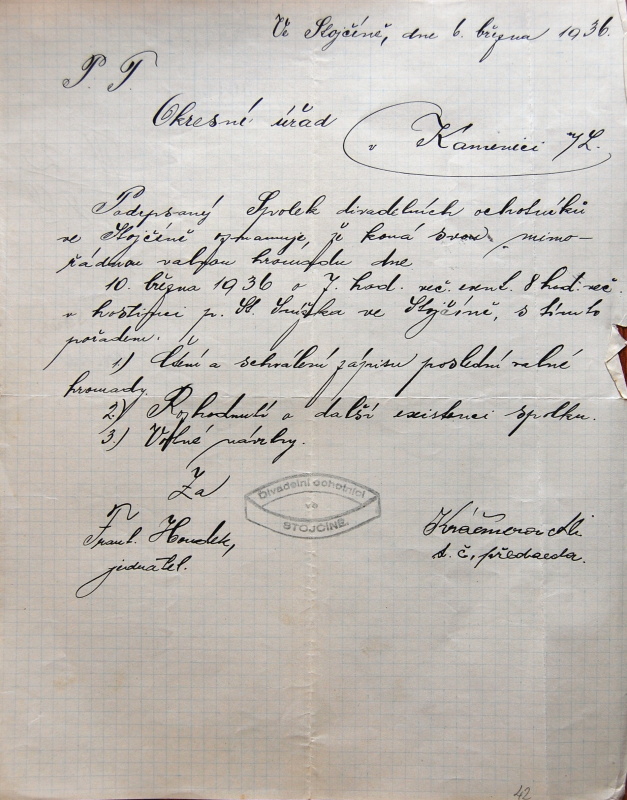 Ve Stojčíně, dne 6. března 1936.
P. T.
Okresní úřad
v Kamenici n/L.
Podepsaný Spolek divadelních ochotníků
ve Stojčíně oznamuje, že koná svou mimo-
řádnou valnou hromadu dne
10. března 1936 o 7. hod. več. event. 8 hod. več.
v hostinci p. St. ve Stojčíně, s tímto
pořadem:
1.) Čtení a schválení zápisu poslední valné
hromady.
2.) Rozhodnutí o další existenci spolku.
3.) Volné návrhy.
Za
Divadelní ochotníci
ve
STOJČÍNĚ.
Frant. Houdek,
jednatel.
t. č. předseda.
42